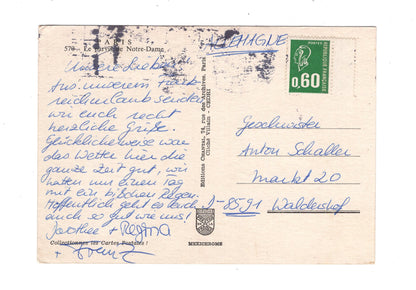 PARIS
570 - Le Parvis de Notre-Dame
ALLEMAGNE
POSTES
0,60
REPUBLIQUE FRANCAISE
Unsere Lieben!
Aus unserem Frank-
reichurlaub senden
wir euch recht
herzliche Grüße.
Glücklicherweise war
das Wetter hier die
ganze Zeit gut, wir
hatten nur einen Tag
mit ein bißchen Regen.
Hoffentlich geht es euch
auch so gut wie uns!
Dorothee + Regina
+ Franz
Collectionnez les Cartes Postales !
Editions Chantal, 74, rue des Archives, Paris
MEXICHROME
Geschwister
Anton Schaller
Markt 20
D-8591 Waldershof